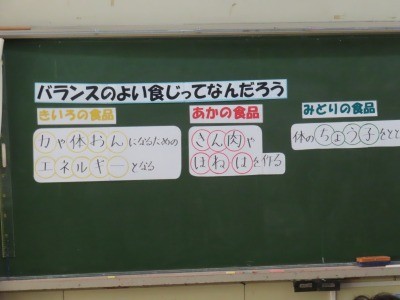 バランスのよい食じってなんだろう
きいろの食品
力や休おんになるための
エネルギーとなる
あかの食品
きん肉や
ほねはを作る
みどりの食品
体のちょう子をとと